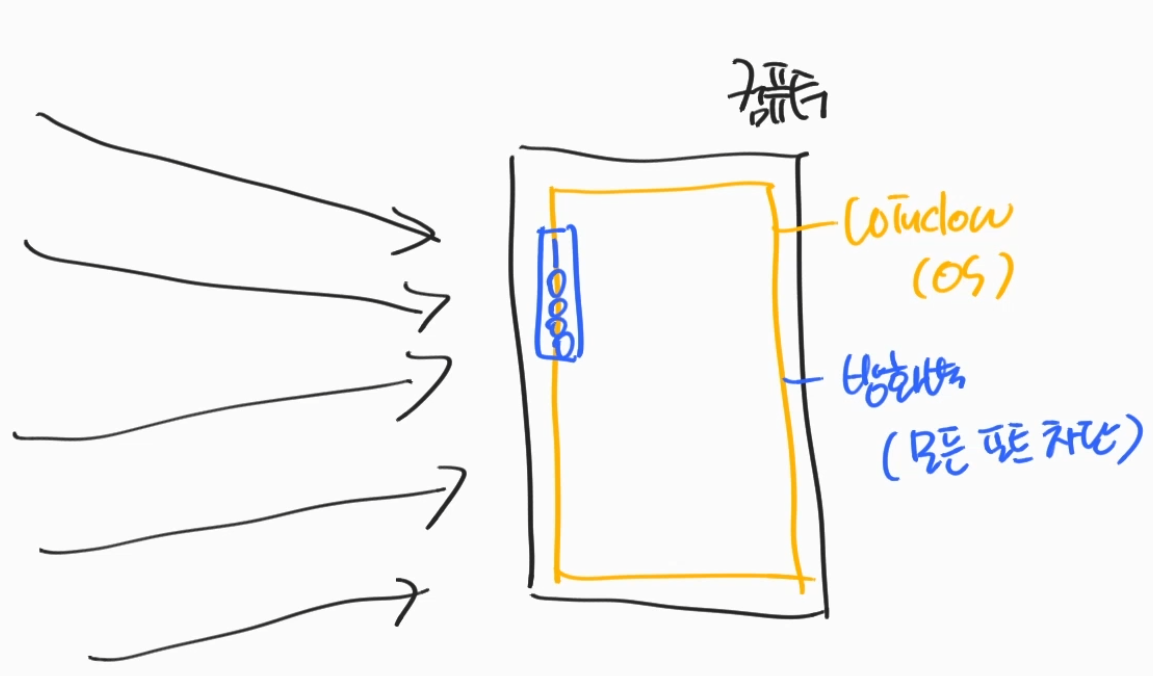 컴퓨터
Window
(OS)
방화벽
(모든 포트 차단)